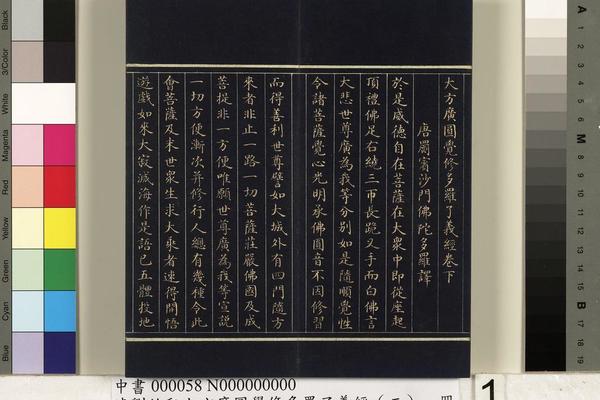 大方廣圓覺修多羅了義經卷下
唐罽賓沙門佛陀多羅譯
於是威德自在菩薩在大眾中即從座起
頂禮佛足右繞三帀長跪叉手而白佛言
大悲世尊廣為我等分別如是隨順覺性
令諸菩薩覺心光明承佛圓音不因修習
而得善利世尊譬如大城外有四門隨方
來者非止一路一切菩薩莊嚴佛國及成
菩提非一方便唯願世尊廣為我等宣說
一切方便漸次并修行人總有幾種令此
會菩薩及末世眾生求大乘者速得開悟
遊戲如來大寂滅海作是語已五體投地
Black
3/Color
White
Magenta
Red
Yellow
Green
Cyan
Blue
A
1
2
3
4
5
6
M
8
9
10
11
12
13
14
15
B
17
18
19
中書 000058 N000000000
1